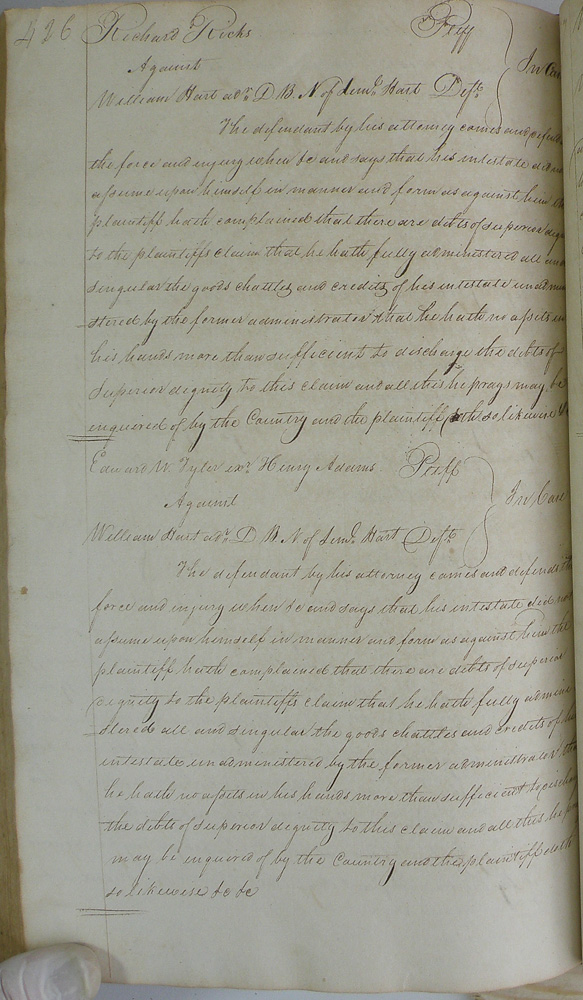 426 Richard Ricks Plff
Against In Case
William Hart adr. D B N of Lemd. Hart Deft.
The defendant by his attorney comes and defends
the force and injury when &c and says that his intestate did not
assume upon himself in manner and form as against him the
plaintiff hath complained that there are debts of superior dignity
to the plaintiffs claim that he hath fully administered all and
singular the goods chattles and credits of his intestate unadmini
stered by the former administrator that he hath no assets in
his hands more than sufficient to discharge the debts of
superior dignity to this claim and all this he prays may be
enquered of by the Country and the plaintiff doth so likewise &c
Edward W. Tyler exr. Henry Adams Plff
Against In Case
William Hart adr. D B N of Lemd. Hart Deft.
The defendant by his attorney comes and defends the
force and injury when &c and says that his intestate did not
assume upon himself in manner and form as against him the
plaintiff hath complained that there are debts of superior
dignity to the plaintiffs claim that he hath fully admini
stered all and singular the goods chattles and credits of his
intestate unadministered by the former administrator that
he hath no assets in his hands more than sufficient to discharge
the debts of superior dignity to this claim and all this he prays
may be inquered of by the Country and the plaintiff doth
so likewise &c &c